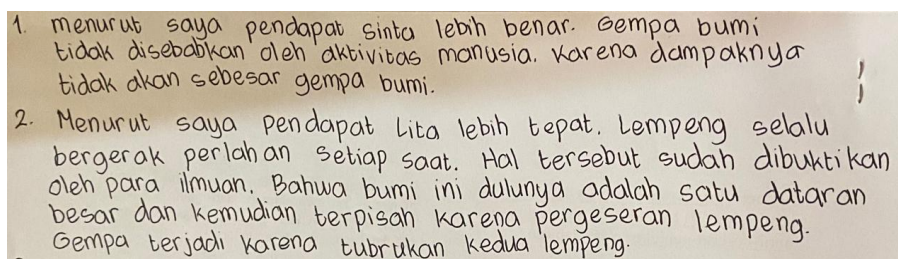 1. menurut saya pendapat sinta lebih benar. Gempa bumi
tidak disebabkan oleh aktivitas manusia. Karena dampaknya
tidak akan sebesar gempa bumi.
2. Menurut saya pendapat Lita lebih tepat. Lempeng selalu
bergerak perlahan setiap saat. Hal tersebut sudah dibuktikan
oleh para ilmuan. Bahwa bumi ini dulunya adalah satu dataran
besar dan kemudian terpisah karena pergeseran lempeng.
Gempa terjadi karena tubrukan kedua lempeng.